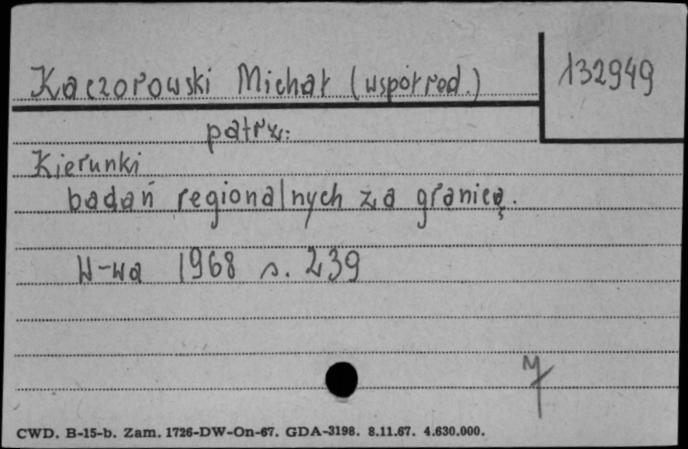 Kaczorowski Michał (współred.)
132949
patrz:
Kierunki
badań regionalnych za granicą.
W-wa 1968 s. 239
CWD. B-15-b. Zam. 1726-DW-On-67. GDA-3198. 8.11.67. 4.630.000.